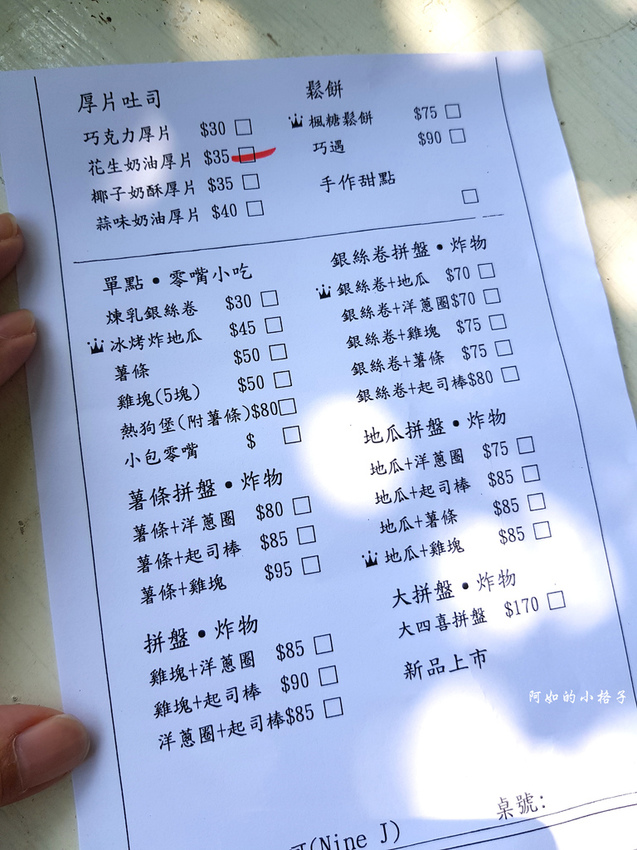 厚片吐司
巧克力厚片 $30
花生奶油厚片 $35
椰子奶酥厚片 $35
蒜味奶油厚片 $40
鬆餅
楓糖鬆餅 $75
巧遇 $90
手作甜點
單點•零嘴小吃
煉乳銀絲卷 $30
冰烤炸地瓜 $45
薯條 $50
雞塊(5塊) $50
熱狗堡(附薯條)$80
小包零嘴 $
薯條拼盤•炸物
薯條+洋蔥圈 $80
薯條+起司棒 $85
薯條+雞塊 $95
拼盤•炸物
雞塊+洋蔥圈 $85
雞塊+起司棒 $90
洋蔥圈+起司棒$85
銀絲卷拼盤•炸物
銀絲卷+地瓜 $70
銀絲卷+洋蔥圈$70
銀絲卷+雞塊 $75
銀絲卷+薯條 $75
銀絲卷+起司棒$80
地瓜拼盤•炸物
地瓜+洋蔥圈 $75
地瓜+起司棒 $85
地瓜+薯條 $85
地瓜+雞塊 $85
大拼盤•炸物
大四喜拼盤 $170
新品上市
阿如的小格子
桌號:
(Nine J)